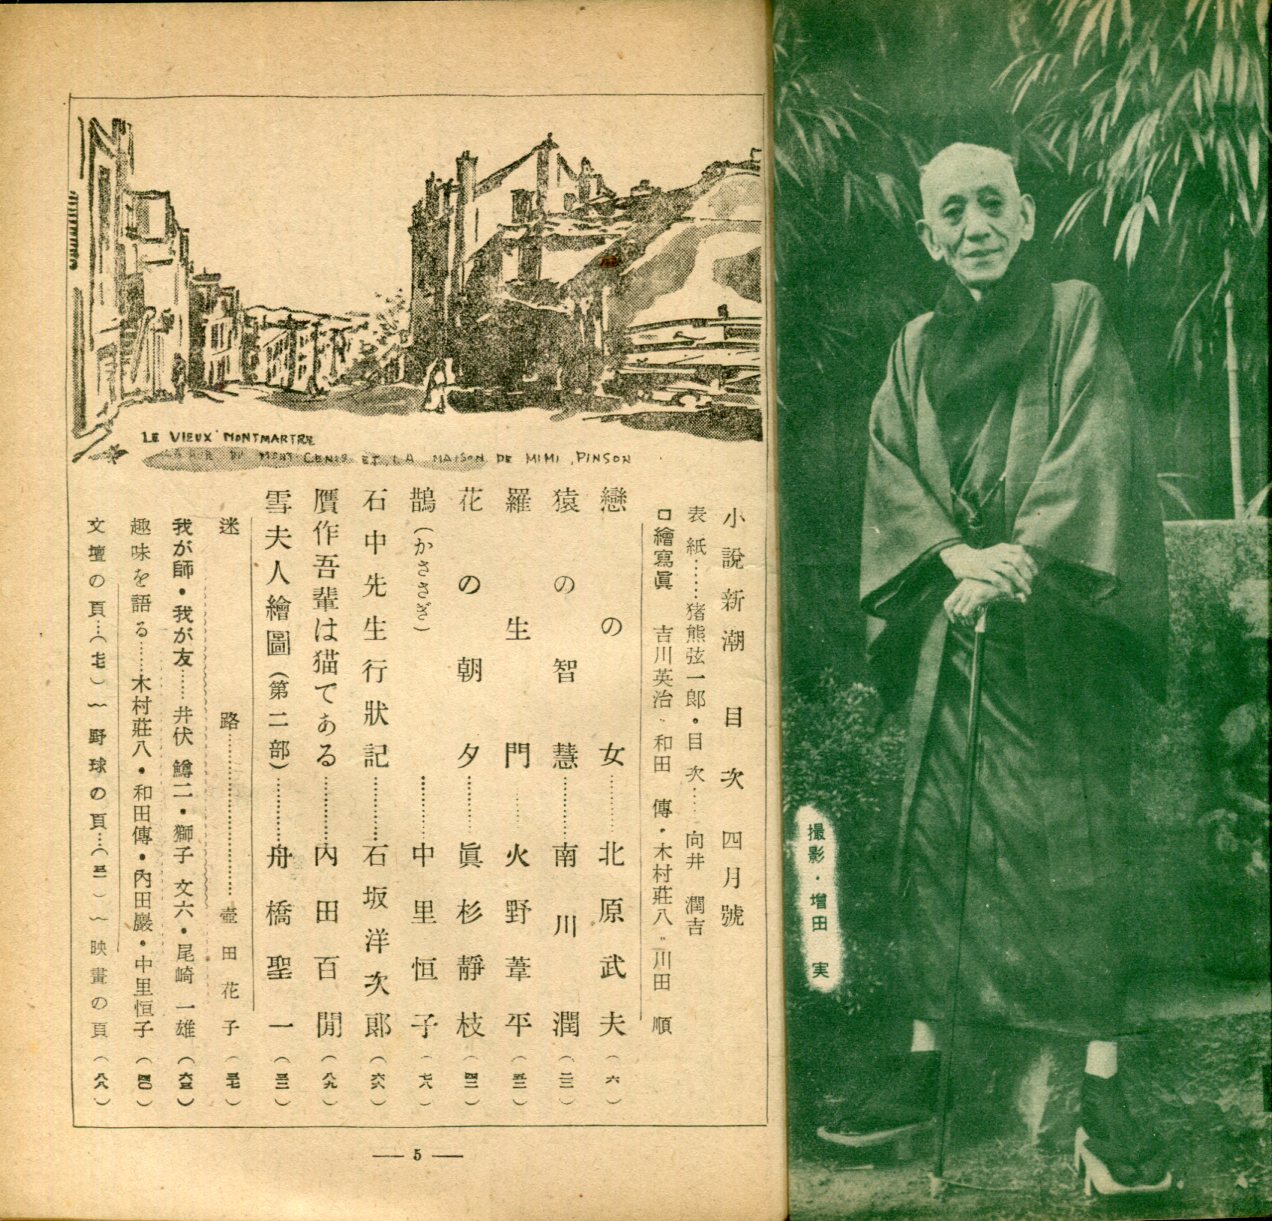 撮影・増田 実
LE VIEUX MONTMARTRE
MONT CENIS ET LA MAISON DE MIMI PINSON
小説新潮 目次 四月號
表紙……猪熊弦一郎・目次……向井 潤吉
口繪寫眞 吉川英治・和田 傳・木村莊八・川田 順
戀の女………北原武夫(六)
猿の智慧………南川 潤(二二)
羅生門………火野葦平(五二)
花の朝夕………眞杉靜枝(四二)
鵲(かささぎ)………中里恒子(七八)
石中先生行狀記………石坂洋次郎(六六)
贋作吾輩は猫である………内田百閒(八九)
雪夫人繪圖(第二部)………舟橋聖一(三二)
迷路………壺田花子(三七)
我が師・我が友……井伏鱒二・獅子文六・尾崎一雄(六三)
趣味を語る……木村莊八・和田傳・内田巖・中里恒子(四〇)
文壇の頁…(七七)〜野球の頁…(三一)〜映畫の頁(八八)
— 5 —